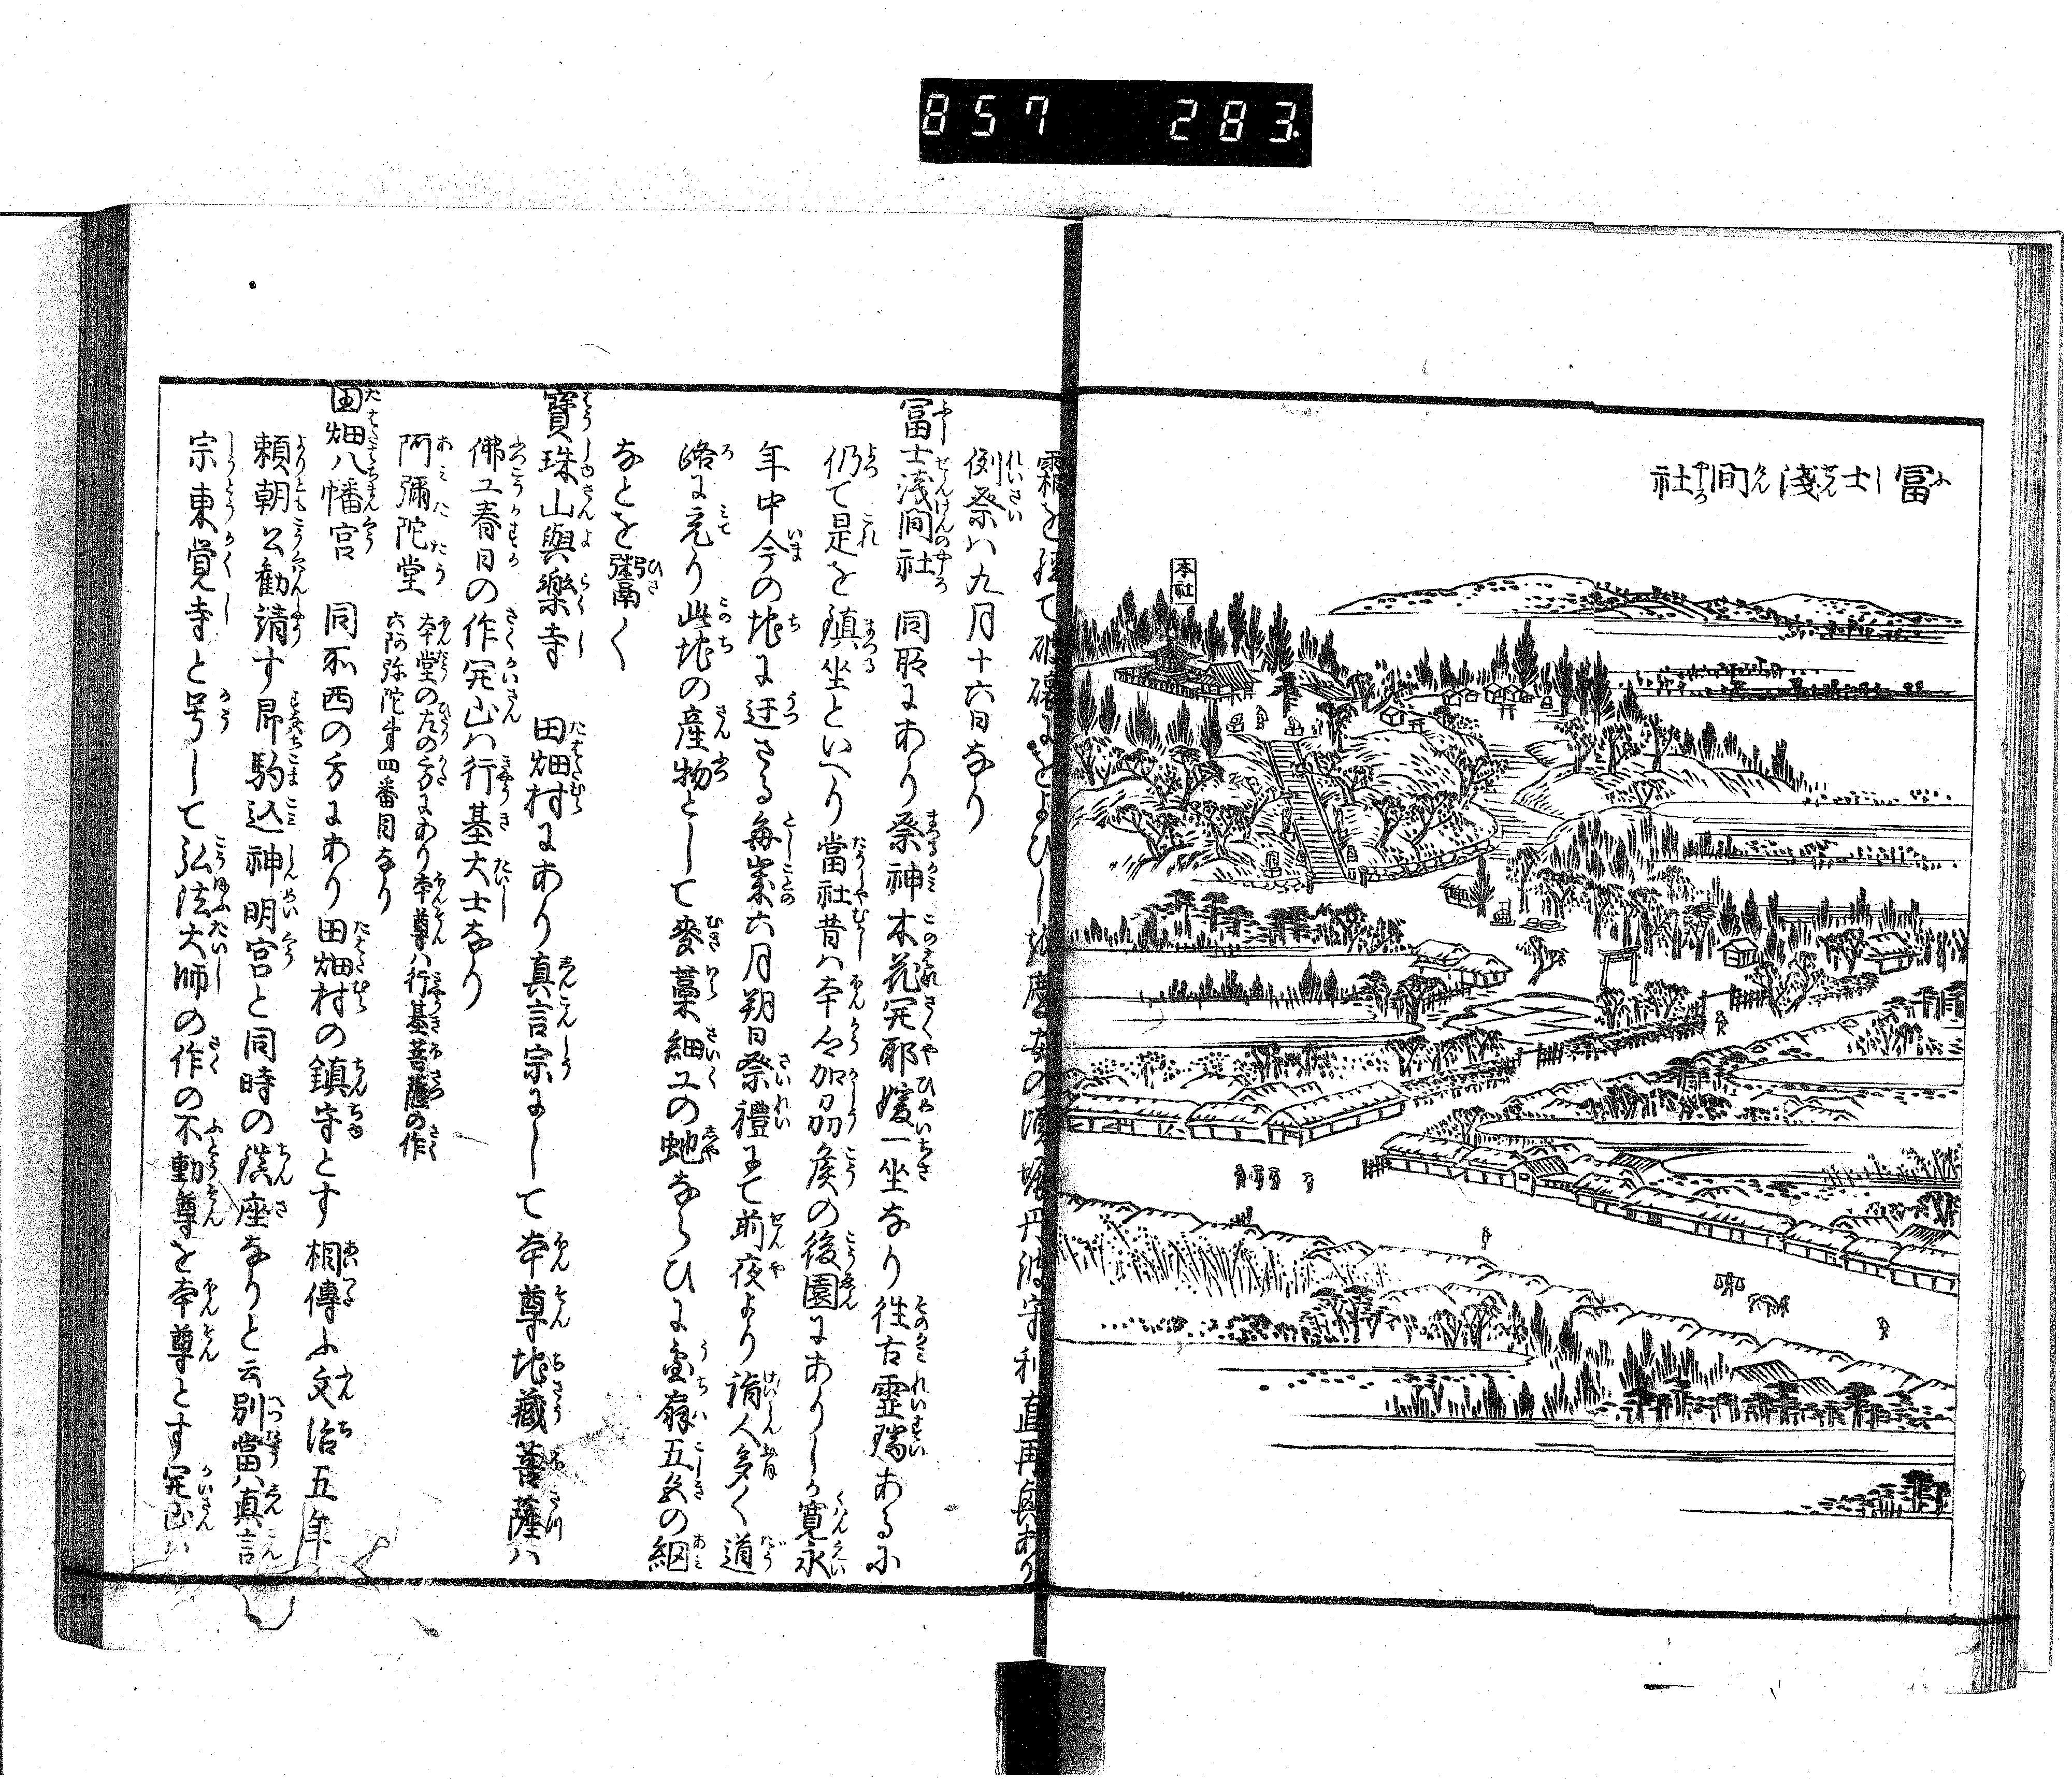 857 283
冨士淺間社
本社
霜を経て破壊におよひしを慶安の頃堀丹波守利直再興あり
例祭ハ九月十六日なり
冨士浅間社 同所にあり祭神木花開耶媛一坐なり往古霊瑞あるに
仍て是を鎮坐といへり當社昔ハ本郷加州侯の後園にありしか寛永
年中今の地に迁さる毎歳六月朔日祭禮にて前夜より詣人多く道
路に充り此地の産物として麥藁細工の蛇ならひに団扇五色の網
なとを鬻く
寶珠山與樂寺 田畑村にあり真言宗にして本尊地藏菩薩ハ
佛工春日の作開山ハ行基大士なり
阿彌陀堂 本堂の左の方にあり本尊ハ行基菩薩の作
六阿弥陀第四番目なり
田畑八幡宮 同所西の方にあり田畑村の鎮守とす相傳ふ文治五年
頼朝公勸請す昂駒込神明宮と同時の鎮座なりと云別當ハ真言
宗東覚寺と号して弘法大師の作の不動尊を本尊とす開山ハ